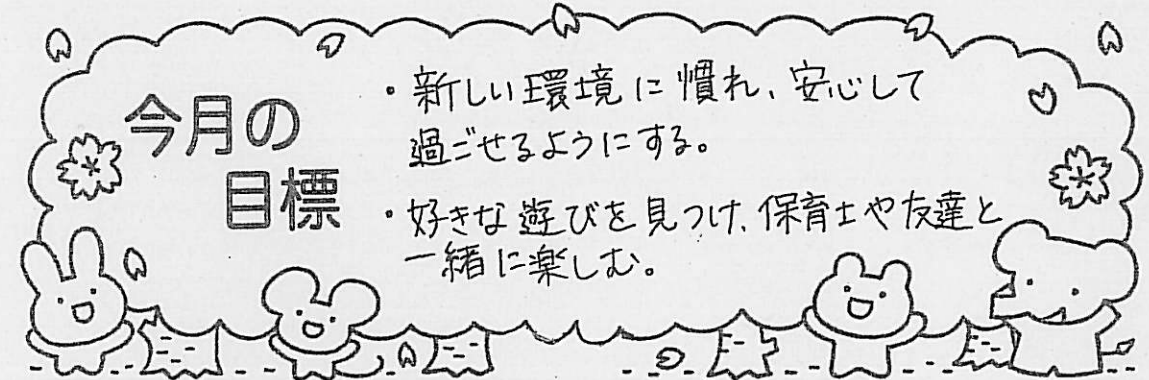 今月の
目標
・新しい環境に慣れ、安心して
過ごせるようにする。
・好きな遊びを見つけ、保育士や友達と
一緒に楽しむ。